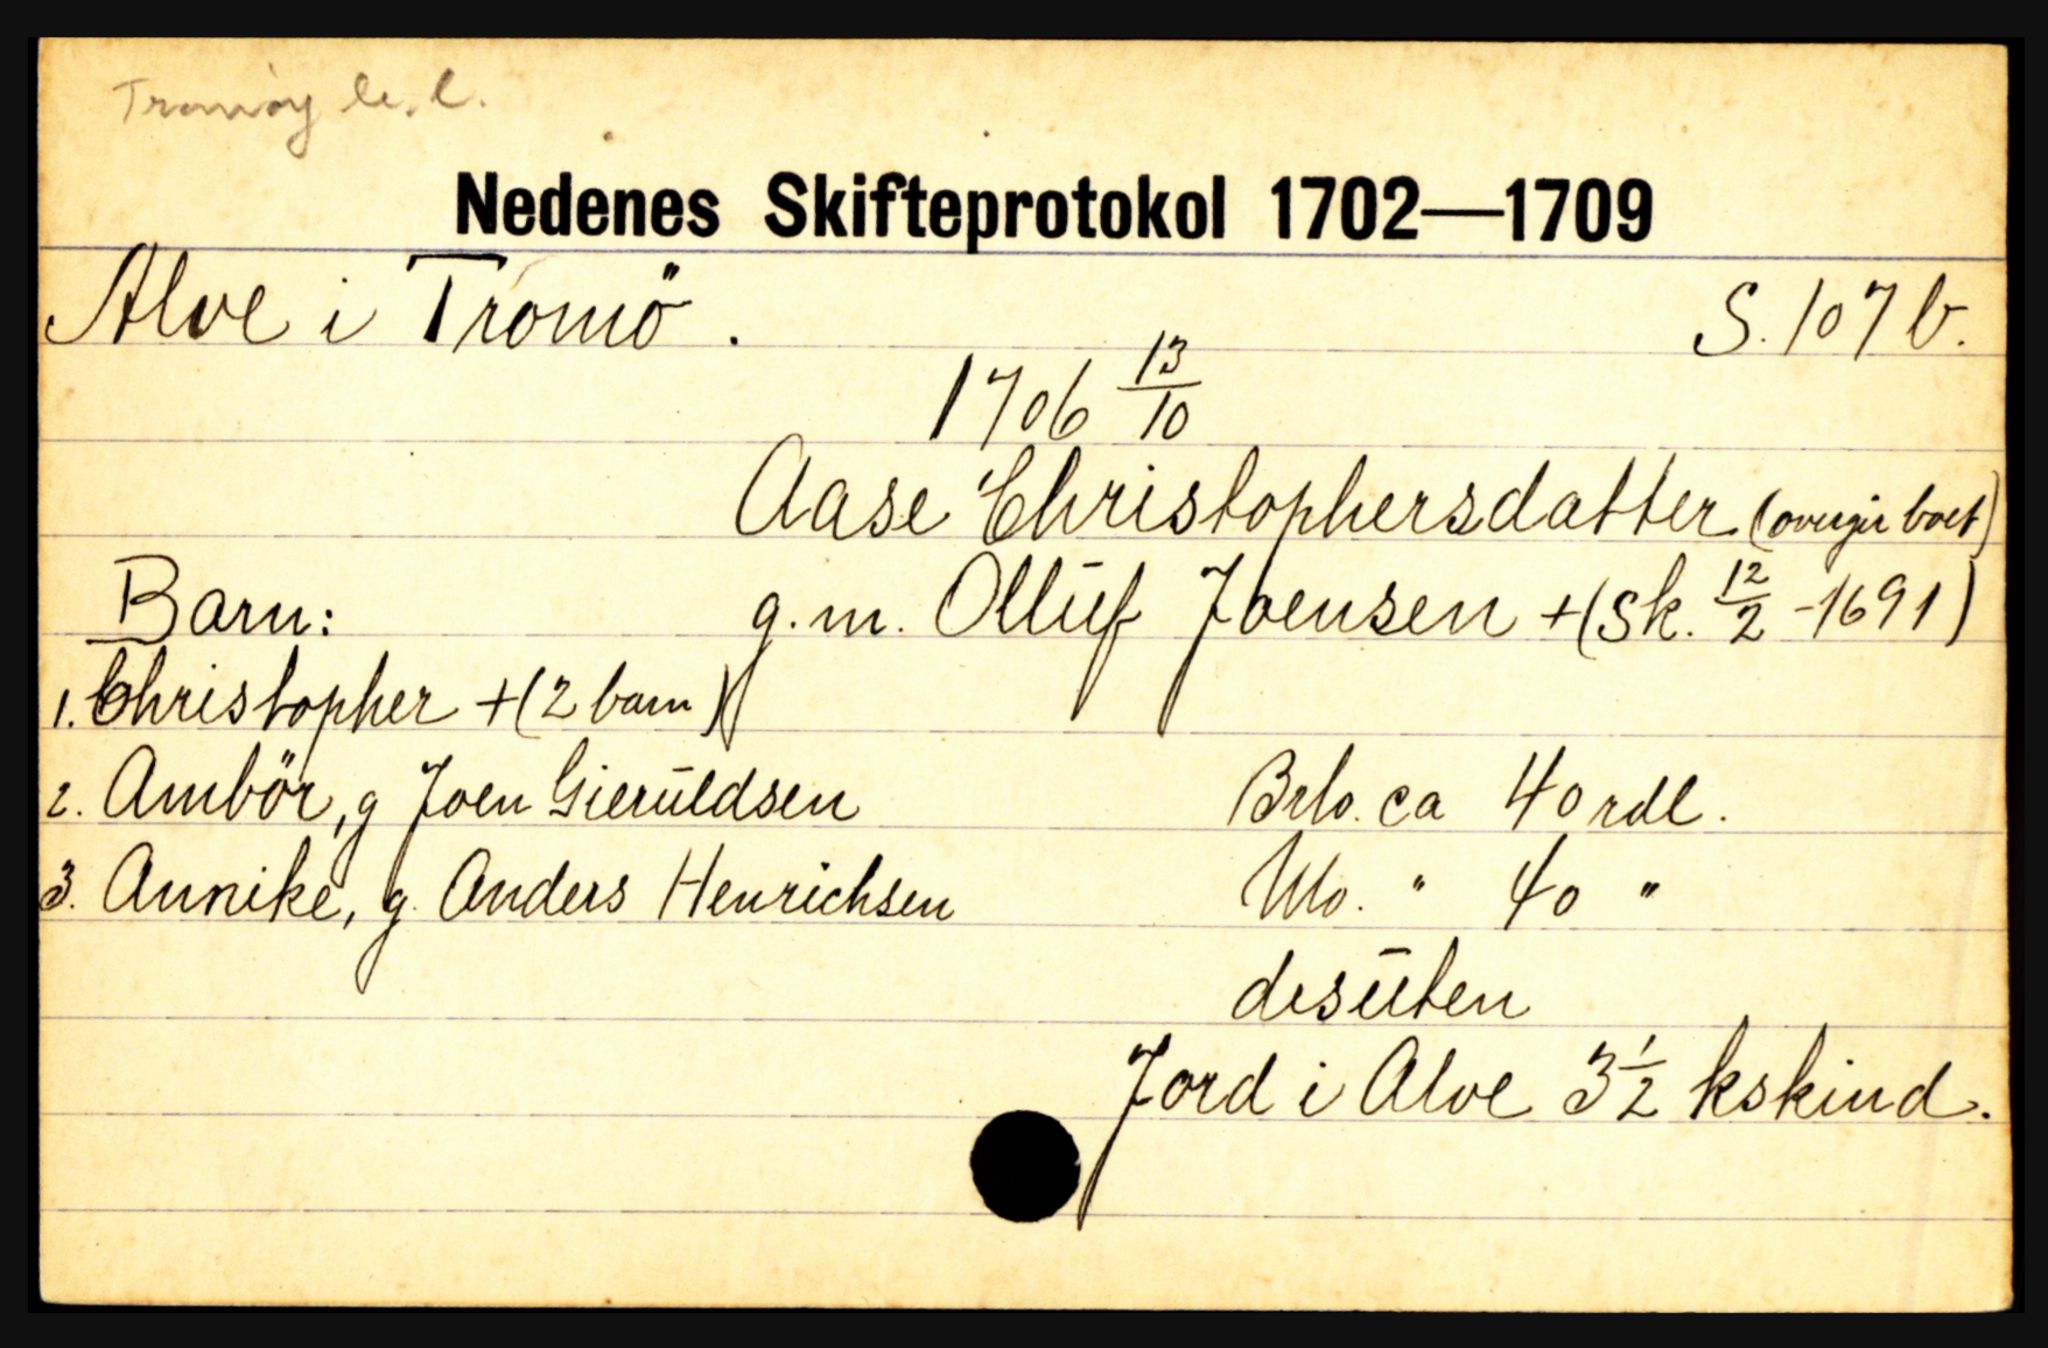 Tromøy
Nedenes Skifteprotokol 1702—1709
Alve i Tromö. S. 107 b.
1706 13/10
Aase Christophersdatter (overgir boet)
Barn: g.m. Olluf Joensen +(Sk. 12/2 -1691)
1. Christopher +(2 barn)
2. Ambör, g Joen Gieruldsen Brto. ca 40 rdl.
3. Annike, g. Anders Henrichsen Nto. " 40 "
desuten
Jord i Alve 3 1/2 kskind.